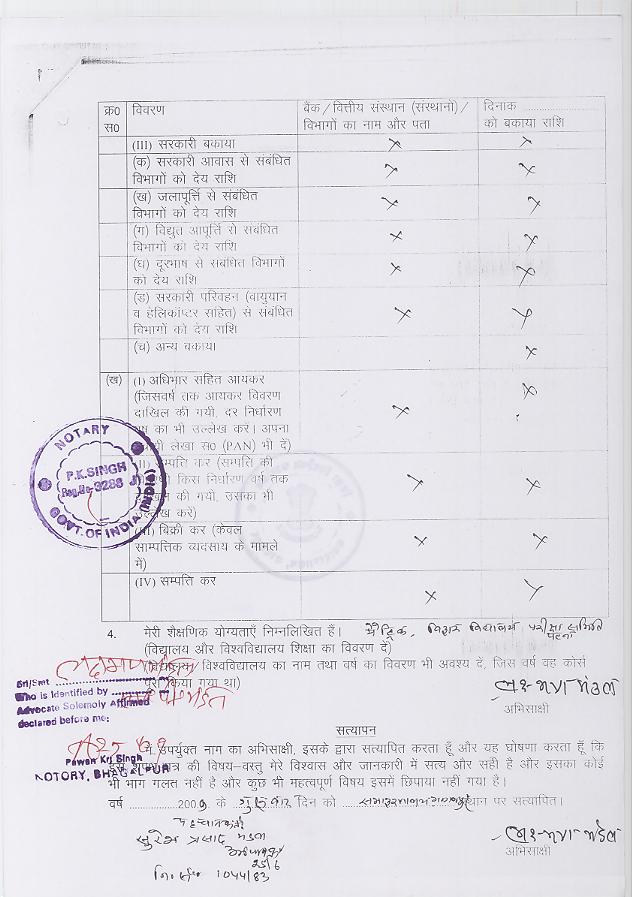 क्र0 विवरण बैंक/वित्तीय संस्थान (संस्थानों)/ दिनांक ....................
स0 विभागों का नाम और पता को बकाया राशि
(III) सरकारी बकाया × ×
(क) सरकारी आवास से संबंधित × ×
विभागों को देय राशि
(ख) जलापूर्ति से संबंधित × ×
विभागों को देय राशि
(ग) विद्युत आपूर्ति से संबंधित × ×
विभागों को देय राशि
(घ) दूरभाष से संबंधित विभागों × ×
को देय राशि
(ड) सरकारी परिवहन (वायुयान × ×
व हेलिकॉप्टर सहित) से संबंधित
विभागों को देय राशि
(च) अन्य बकाया ×
(ख) (I) अधिभार सहित आयकर × ×
(जिसवर्ष तक आयकर विवरण
दाखिल की गयी, दर निर्धारण
का भी उल्लेख करें। अपना
लेखा स0 (PAN) भी दें)
सम्पति कर (सम्पति की × ×
किस निर्धारण वर्ष तक
की गयी, उसका भी
करें)
बिक्री कर (केवल × ×
साम्पत्तिक व्यवसाय के मामले
में)
(IV) सम्पति कर × ×
NOTARY
P.K.SINGH
Reg.No-9286
GOVT.OF INDIA (INDIA)
4. मेरी शैक्षणिक योग्यताएँ निम्नलिखित हैं। मैट्रिक, बिहार विद्यालय परीक्षा समिति
पटना
(विद्यालय और विश्वविद्यालय शिक्षा का विवरण दें)
विश्वविद्यालय का नाम तथा वर्ष का विवरण भी अवश्य दें, जिस वर्ष वह कोर्स
पूरा किया गया था)
Sri/Smt
Who is Identified by
Advocate Solemoly Affirmed
declared before me:
मंडल
अभिसाक्षी
सत्यापन
मैं उपर्युक्त नाग का अभिसाक्षी, इसके द्वारा सत्यापित करता हूँ और यह घोषणा करता हूँ कि
इस शपथ पत्र की विषय-वस्तु मेरे विश्वास और जानकारी में सत्य और सही है और इसका कोई
भी भाग गलत नहीं है और कुछ भी महत्वपूर्ण विषय इसमें छिपाया नहीं गया है।
Pawan Kr. Singh
NOTORY, BHAGALPUR
वर्ष ............. 2009 के गुरुवार दिन को स्थान पर सत्यापित।
सुरेश प्रसाद मंडल
25/6
1044/83
मंडल
अभिसाक्षी